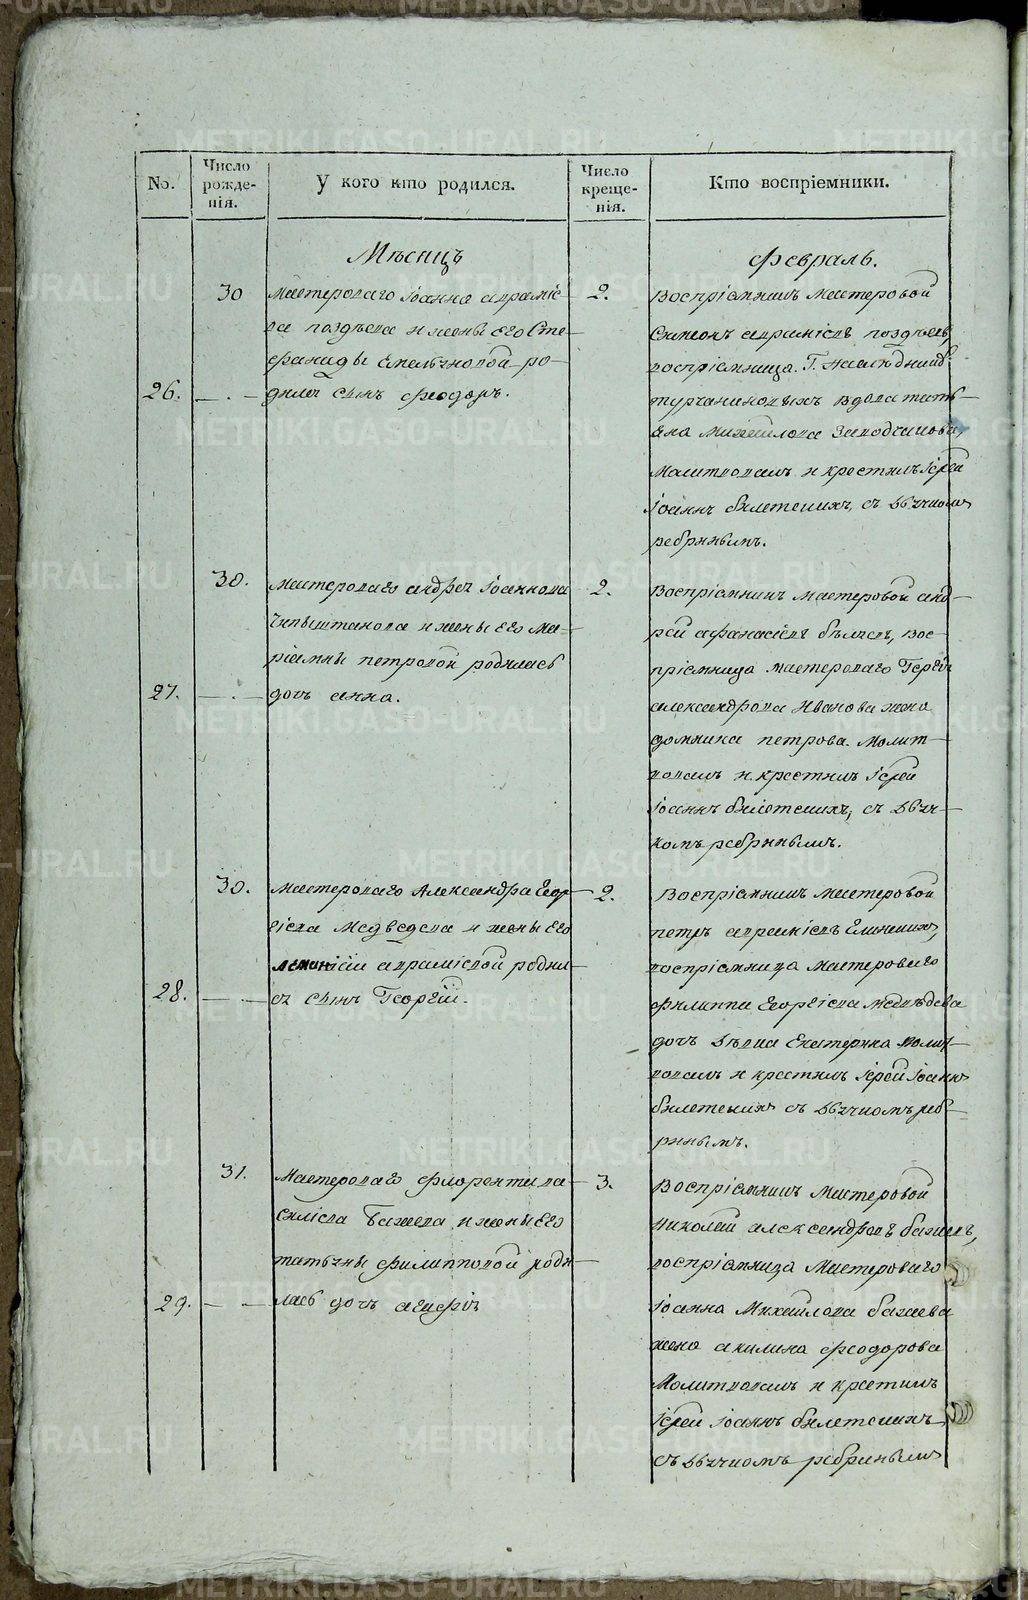 No.
Число рожде-нія.
У кого кто родился.
Число креще-нія.
Кто воспріемники.
Мѣсяцъ
Февраль.
26.
30
Мастероваго Іоанна Авраміе-
ва поздѣева и жены его Сте-
фаниды Емельяновой ро-
дился сынъ феодоръ.
2.
Воспріемникъ мастеровой
Симеонъ авраміевъ поздѣевъ,
воспріемница. Г. наслѣдник
турчаниновыхъ вдова тать-
яна михайлова
Молитвовалъ и крестилъ Іерей
Іоаннъ билетскихъ, съ дьячкомъ
ребринымъ.
27.
30.
Мастероваго андрея Іоаннова
Чипыштанова и жены его Ма-
ріамны петровой родилась
дочь анна.
2.
Воспріемникъ мастеровой анд-
рей афанасіевъ бѣлевъ, вос-
пріемница мастероваго Сергѣя
александрова Иванова жена
домника петрова. Молит-
вовалъ и крестилъ Іерей
Іоаннъ билетскихъ, съ дьяч-
комъ ребринымъ.
28.
30.
Мастероваго Александра Егор-
ьева Медведева и жены его
авраміевой роди-
ся сынъ Георгій.
2.
Воспріемникъ мастеровой
петръ авраміевъ Елинскихъ,
воспріемница мастероваго
филиппа Егорьева медвѣдева
дочь дѣвка Екатерина молит-
вовалъ и крестилъ Іерей Іоаннъ
билетскихъ съ дьячкомъ реб-
ринымъ.
29.
31.
Мастероваго флорентна ва-
силіева бажева, и жены его
татьяны филипповой роди-
лась дочь агафія
3.
Воспріемникъ мастеровой
николай александровъ бажевъ,
воспріемница мастероваго
Іоанна михайлова бажева
жена акилина феодорова
Молитвовалъ и крестилъ
Іерей Іоаннъ билетскихъ,
съ дьячкомъ ребринымъ
METRIKI.GASO-URAL.RU